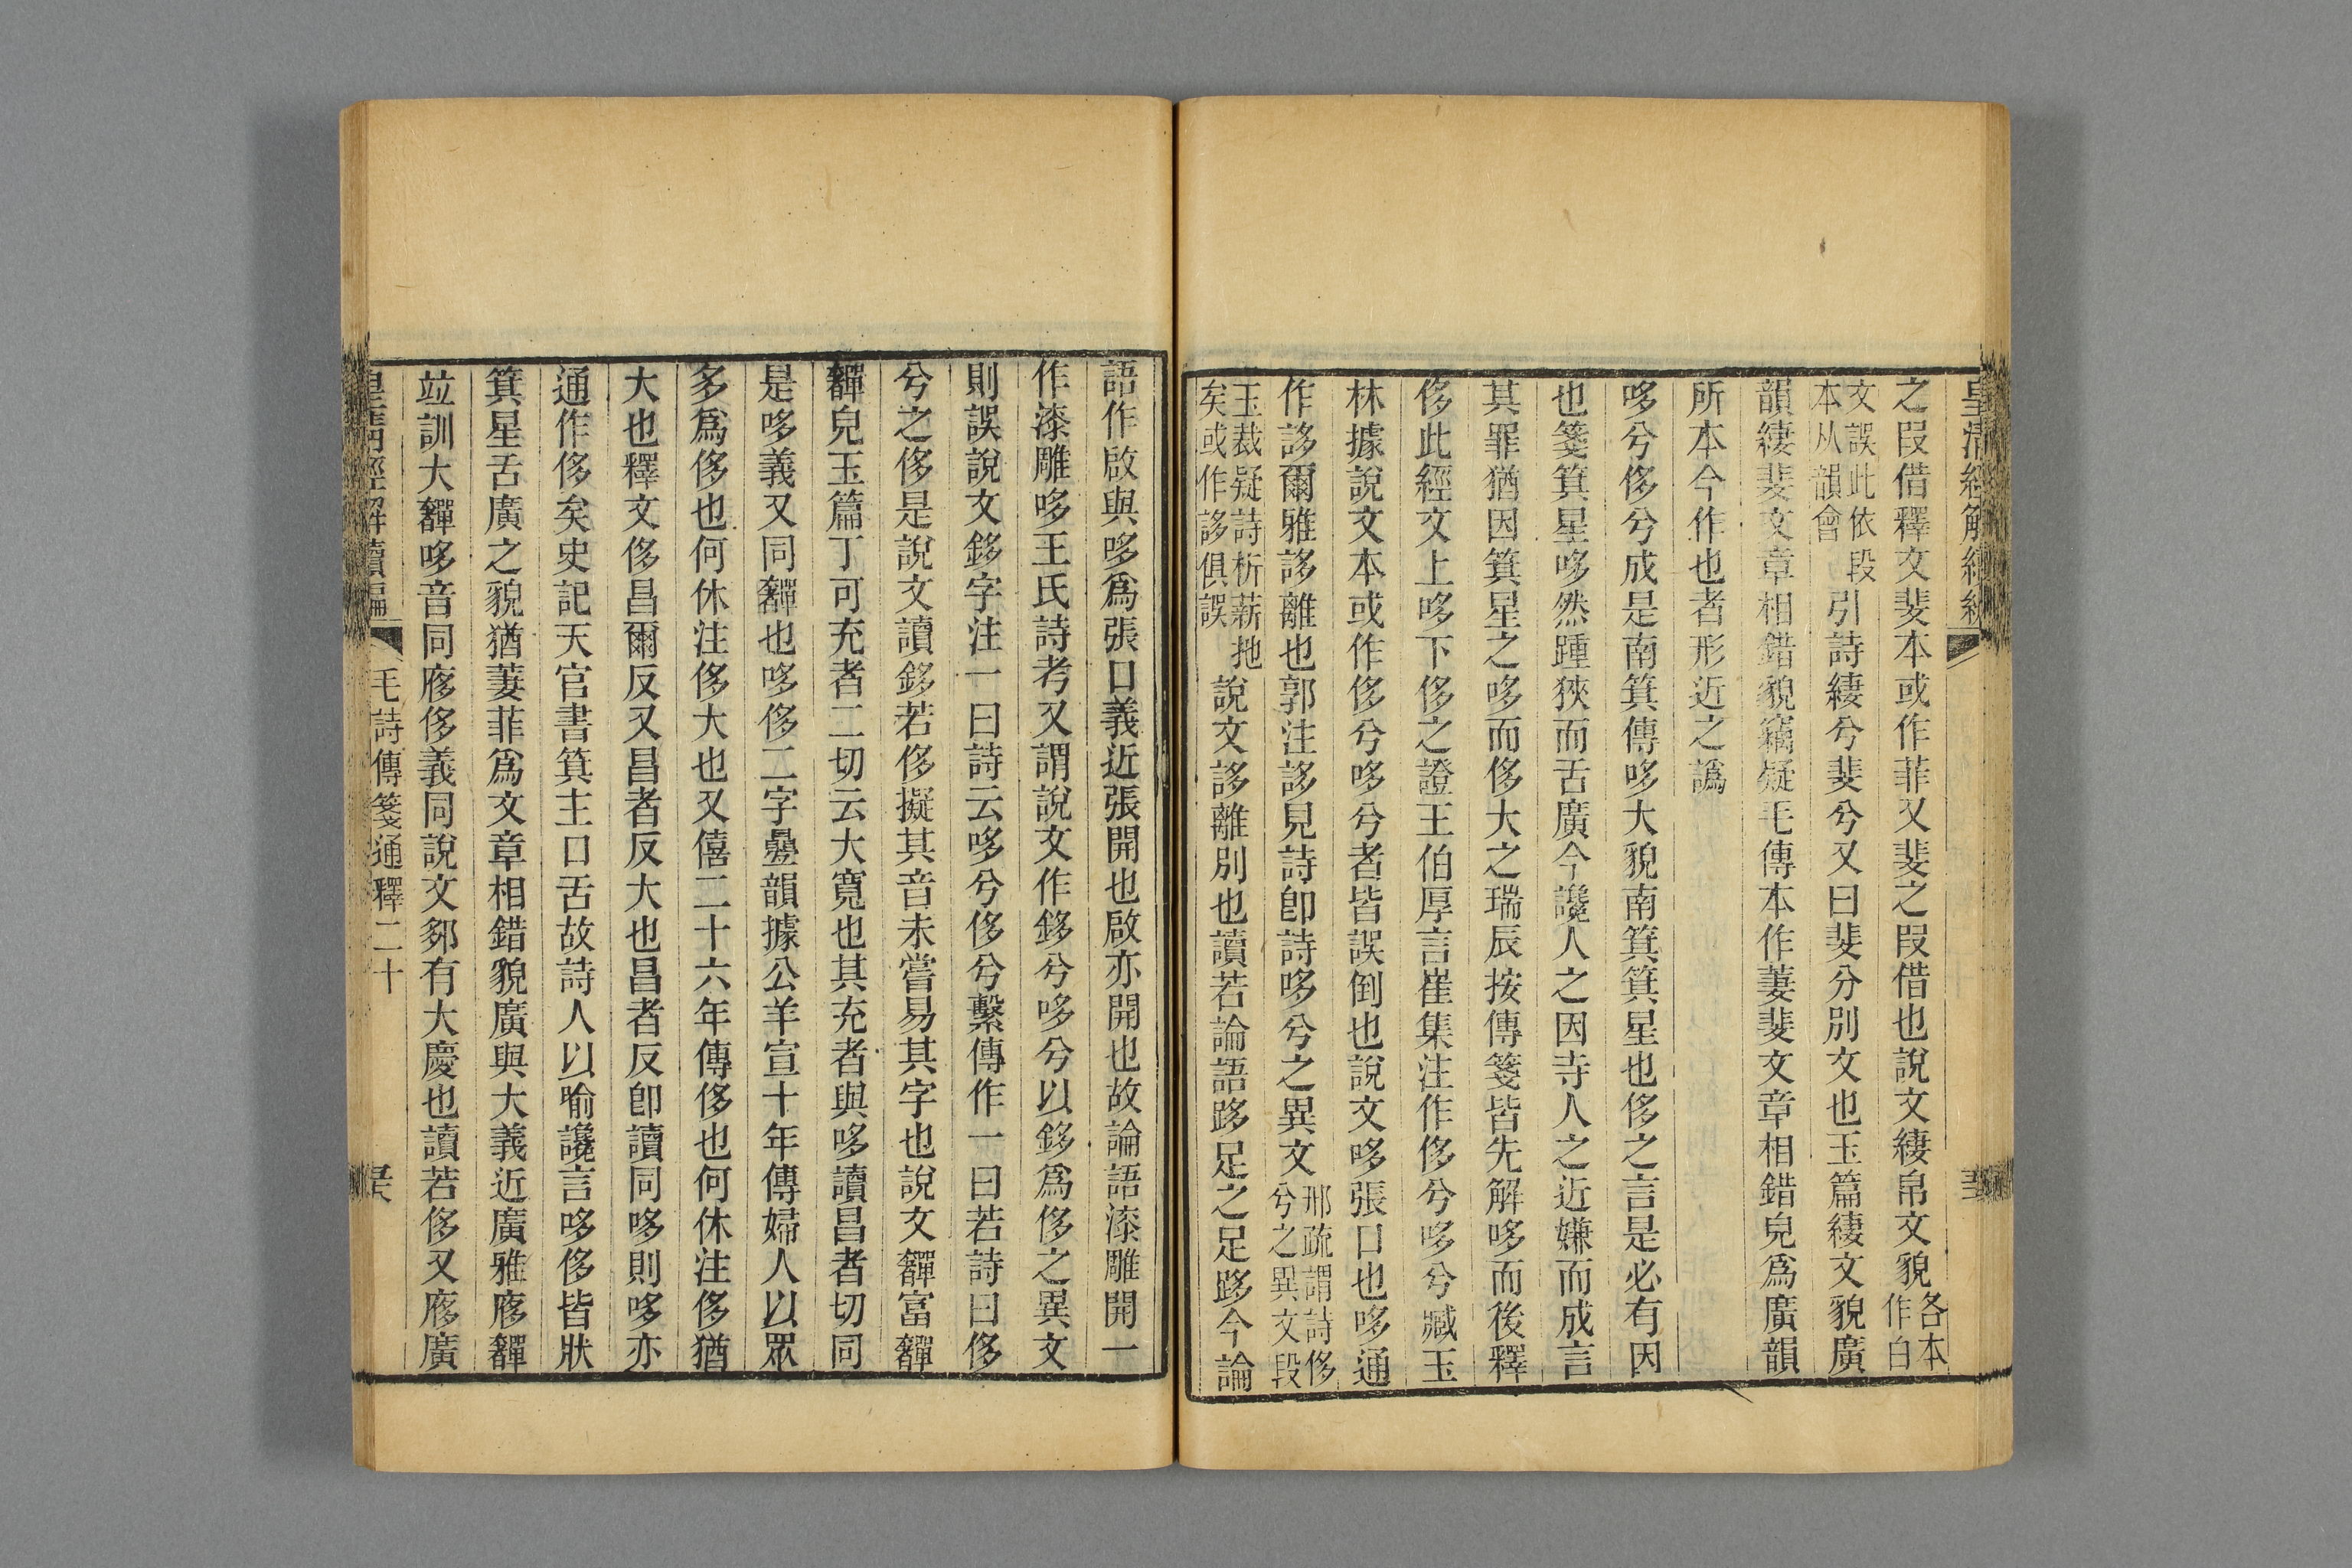 之叚借釋文斐本或作菲又斐之叚借也說文緀帛文貌各本作白
文誤此依段本从韻會引詩緀兮斐兮又曰斐分別文也玉篇緀文貌廣
韻緀斐文章相錯貌竊疑毛傳本作萋斐文章相錯皃爲廣韻
所本今作也者形近之譌
哆兮侈兮成是南箕傳哆大貌南箕箕星也侈之言是必有因
也箋箕星哆然踵狹而舌廣今讒人之因寺人之近嫌而成言
其罪猶因箕星之哆而侈大之瑞辰按傳箋皆先解哆而後釋
侈此經文上哆下侈之證王伯厚言崔集注作侈兮哆兮臧玉
林據說文本或作侈兮哆兮者皆誤倒也說文哆張口也哆通
作誃爾雅誃離也郭注誃見詩卽詩哆兮之異文邢疏謂詩侈兮之異文段
玉裁疑詩析薪扡矣或作誃俱誤說文誃離別也讀若論語跢足之足跢今論
語作啟與哆爲張口義近張開也啟亦開也故論語漆雕開一
作漆雕哆王氏詩考又謂說文作鉹兮哆兮以鉹爲侈之異文
則誤說文鉹字注一曰詩云哆兮侈兮繫傳作一曰若詩曰侈
兮之侈是說文讀鉹若侈擬其音未嘗易其字也說文奲富奲
奲皃玉篇丁可充者二切云大寬也其充者與哆讀昌者切同
是哆義又同奲也哆侈二字曡韻據公羊宣十年傳婦人以眾
多爲侈也何休注侈大也又僖二十六年傳侈也何休注侈猶
大也釋文侈昌爾反又昌者反大也昌者反卽讀同哆則哆亦
通作侈矣史記天官書箕主口舌故詩人以喻讒言哆侈皆狀
箕星舌廣之貌猶萋菲爲文章相錯貌廣與大義近廣雅㢋奲
竝訓大奲哆音同㢋侈義同說文郍有大慶也讀若侈又㢋廣
毛詩傳箋通釋二十